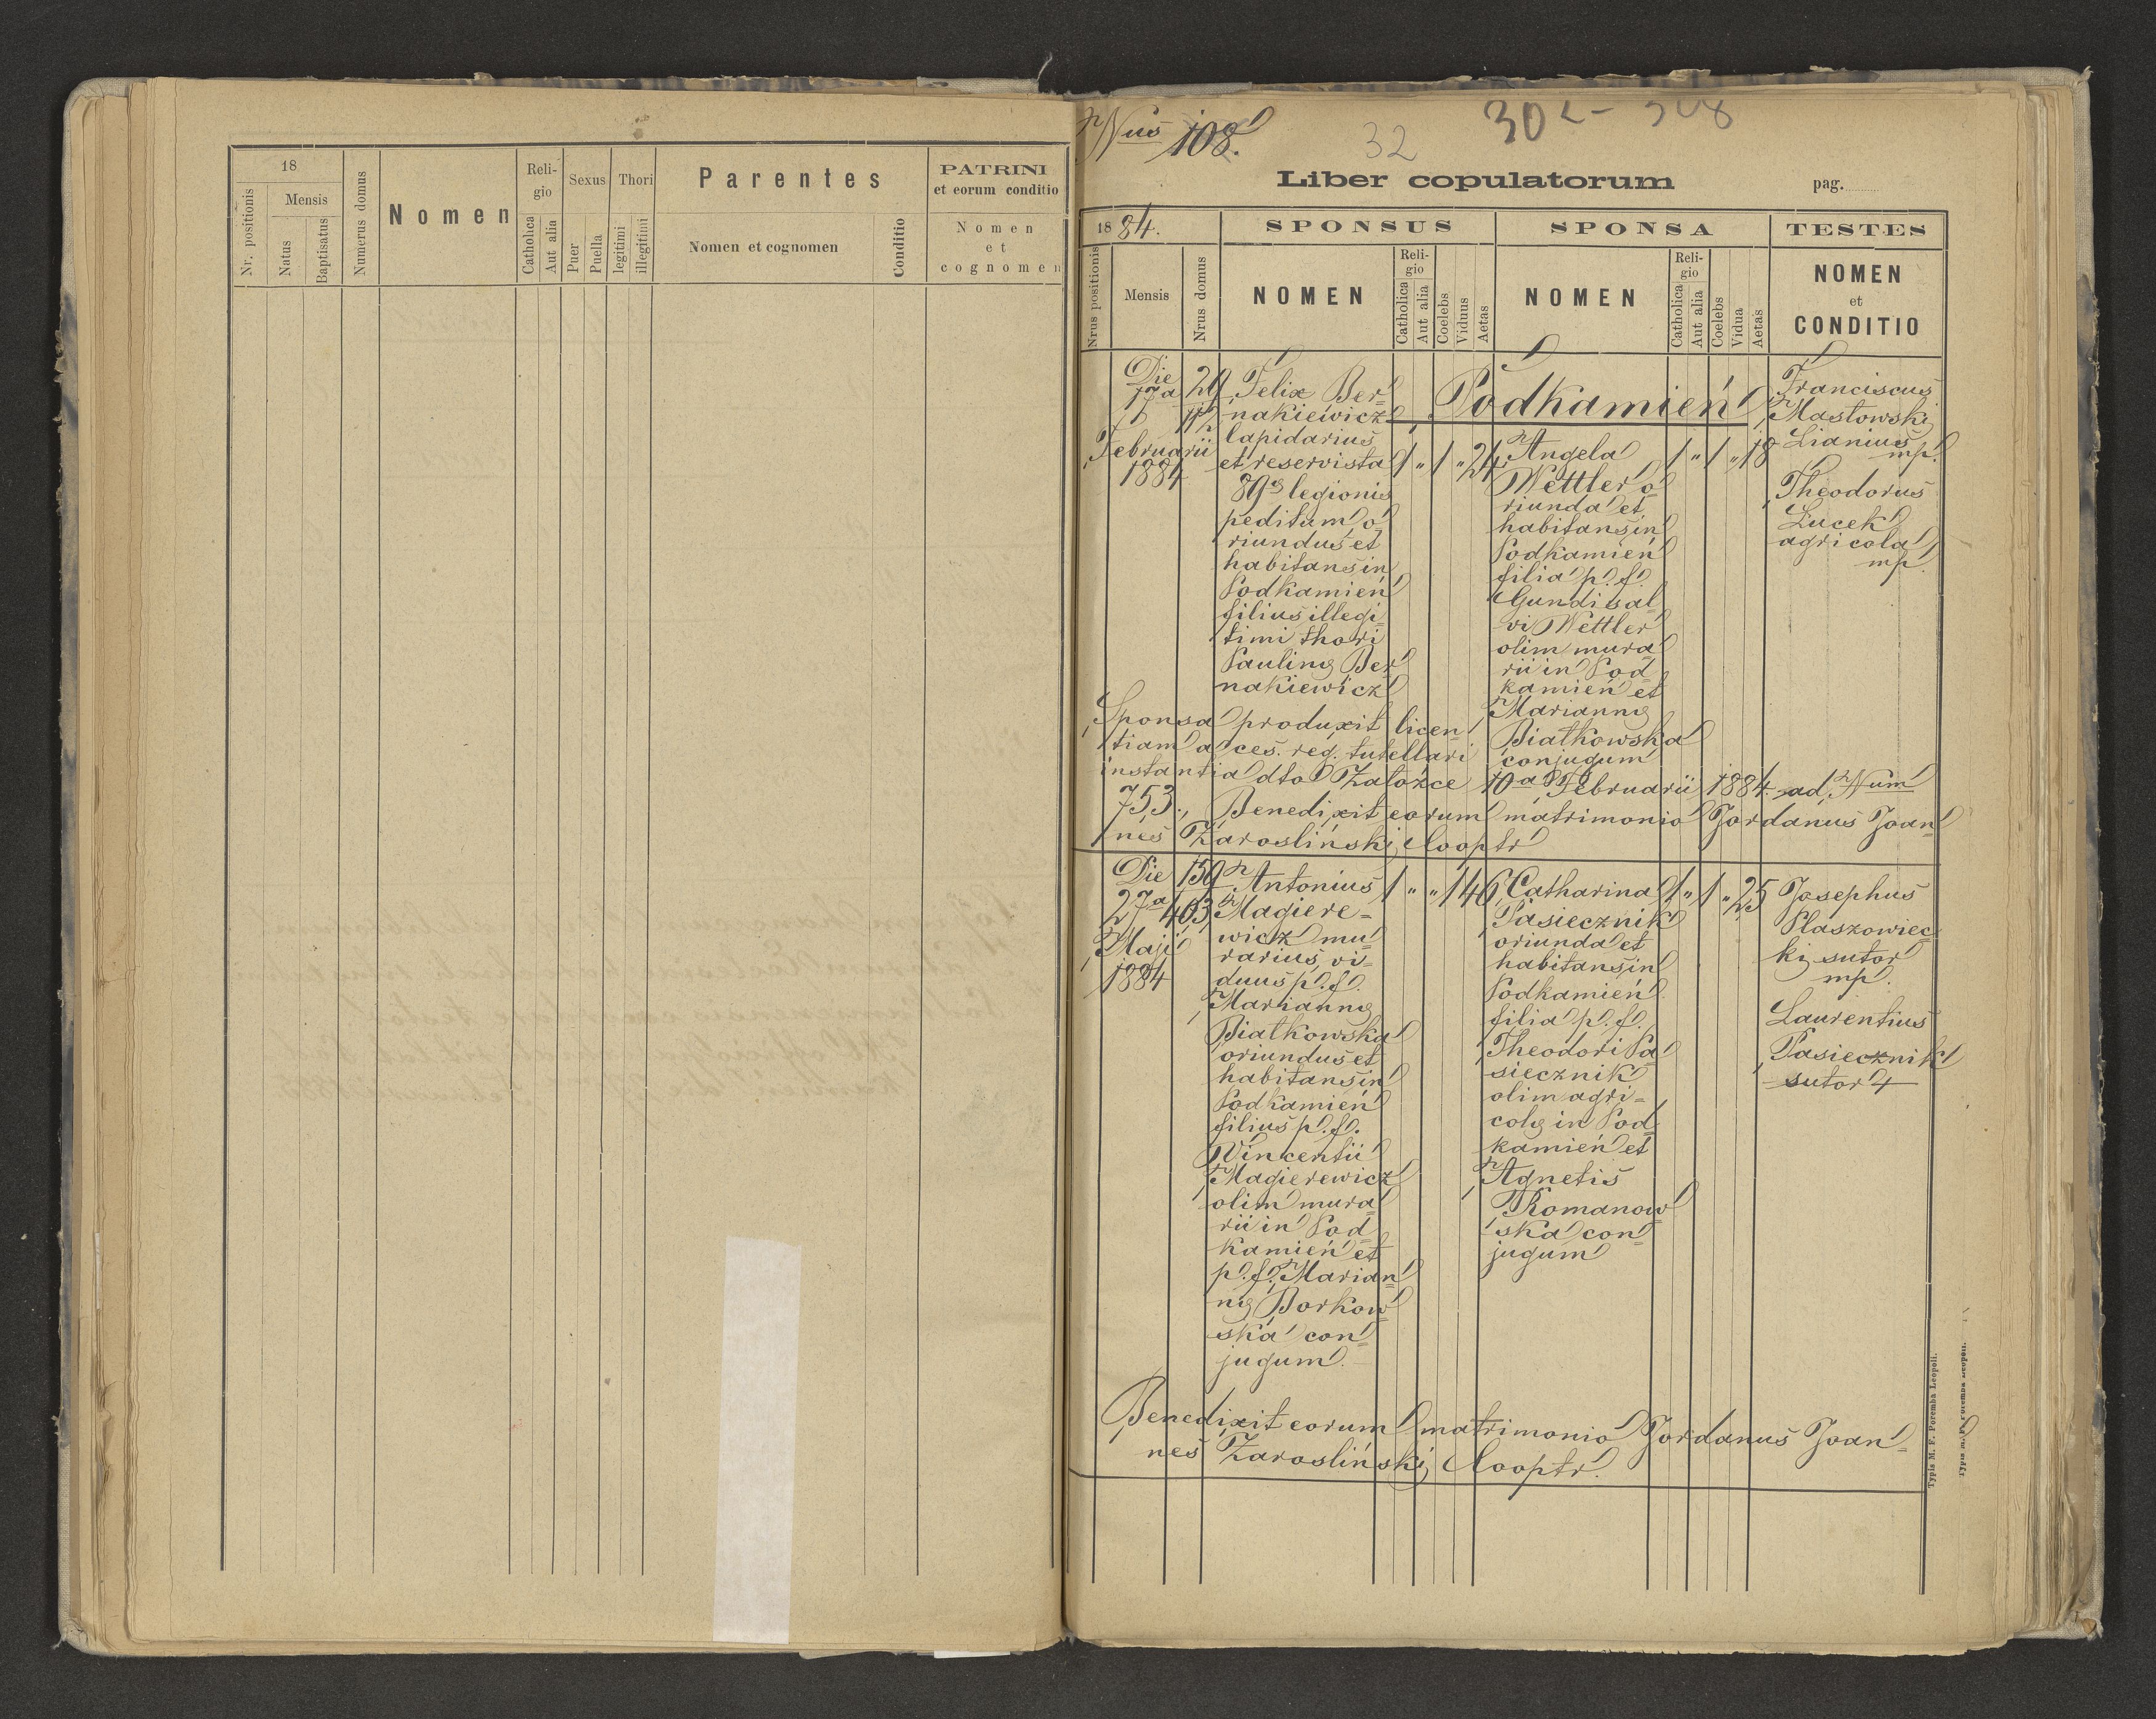 18
Nr. positionis
Mensis
Natus
Baptisatus
Numerus domus
Nomen
Religio
Catholica
Aut alia
Sexus
Puer
Puella
Thori
legitimi
illegitimi
Parentes
Nomen et cognomen
Conditio
PATRINI
et eorum conditio
Nomen
et
cognomen
Nus 108.
32
302-308
Liber copulatorum
pag.
1884.
SPONSUS
SPONSA
TESTES
Nrus positionis
Mensis
Nrus domus
NOMEN
Religio
Catholica
Aut alia
Coelebs
Viduus
Aetas
NOMEN
Religio
Catholica
Aut alia
Coelebs
Vidua
Aetas
NOMEN
et
CONDITIO
Podkamień
Die
17a
Februarii
1884
29
Felix Ber=
nakiewicz
lapidarius
et reservista
89æ legionis
peditum o=
riundus et
habitans in
Podkamień
filius illegi=
timi thori
Paulinæ Ber=
nakiewicz
1 " 1 " 24
Angela
Wettler o=
riunda et
habitans in
Podkamień
filia p. d.
Gundisal=
vi Wettler
olim mura=
rii in Pod=
kamień et
Mariannæ
Białkowska
conjugum
1 " 1 " 18
Franciscus
Masłowski
Lanius
mp.
Theodorus
Lucek
agricola
mp.
Sponsa produxit licen=
tiam a ces. reg. tutellari
instantia dto Załoźce 10a Februarii 1884 ad Num
753., Benedixit eorum matrimonio Jordanus Joan=
nes Zarosliński Cooptr
Die
27a
Maji
1884
159
403
Antonius
Magiere=
wicz mu=
rarius vi=
duus p. d.
Mariannæ
Białkowska
oriundus et
habitans in
Podkamień
filius p. d.
Vincentii
Magierewicz
olim mura=
rii in Pod=
kamień et
p. d. Marian=
næ Borkow=
ska con=
jugum.
1 " " 1 46
Catharina
Pasiecznik
oriunda et
habitans in
Podkamień
filia p. d.
Theodori Pa=
siecznik
olim agri=
colæ in Pod=
kamień et
Agnetis
Romanow=
ska con=
jugum
1 " 1 " 25
Josephus
Płaszowiec=
ki sutor
mp.
Laurentius
Pasiecznik
sutor +
Benedixit eorum matrimonio Jordanus Joan=
nes Zarosliński Cooptr.
Typis M. F. Poremba Leopoli.